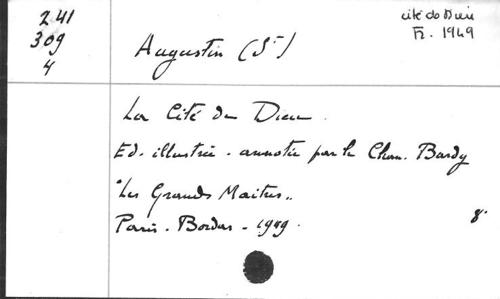 241
309
4
Cité de Dieu
Fr. 1949
Augustin (St)
La Cité de Dieu.
Ed. illustrée - annotée par le Chan. Bardy
"Les Grands Maitres"
Paris - Bordas - 1949.
8°